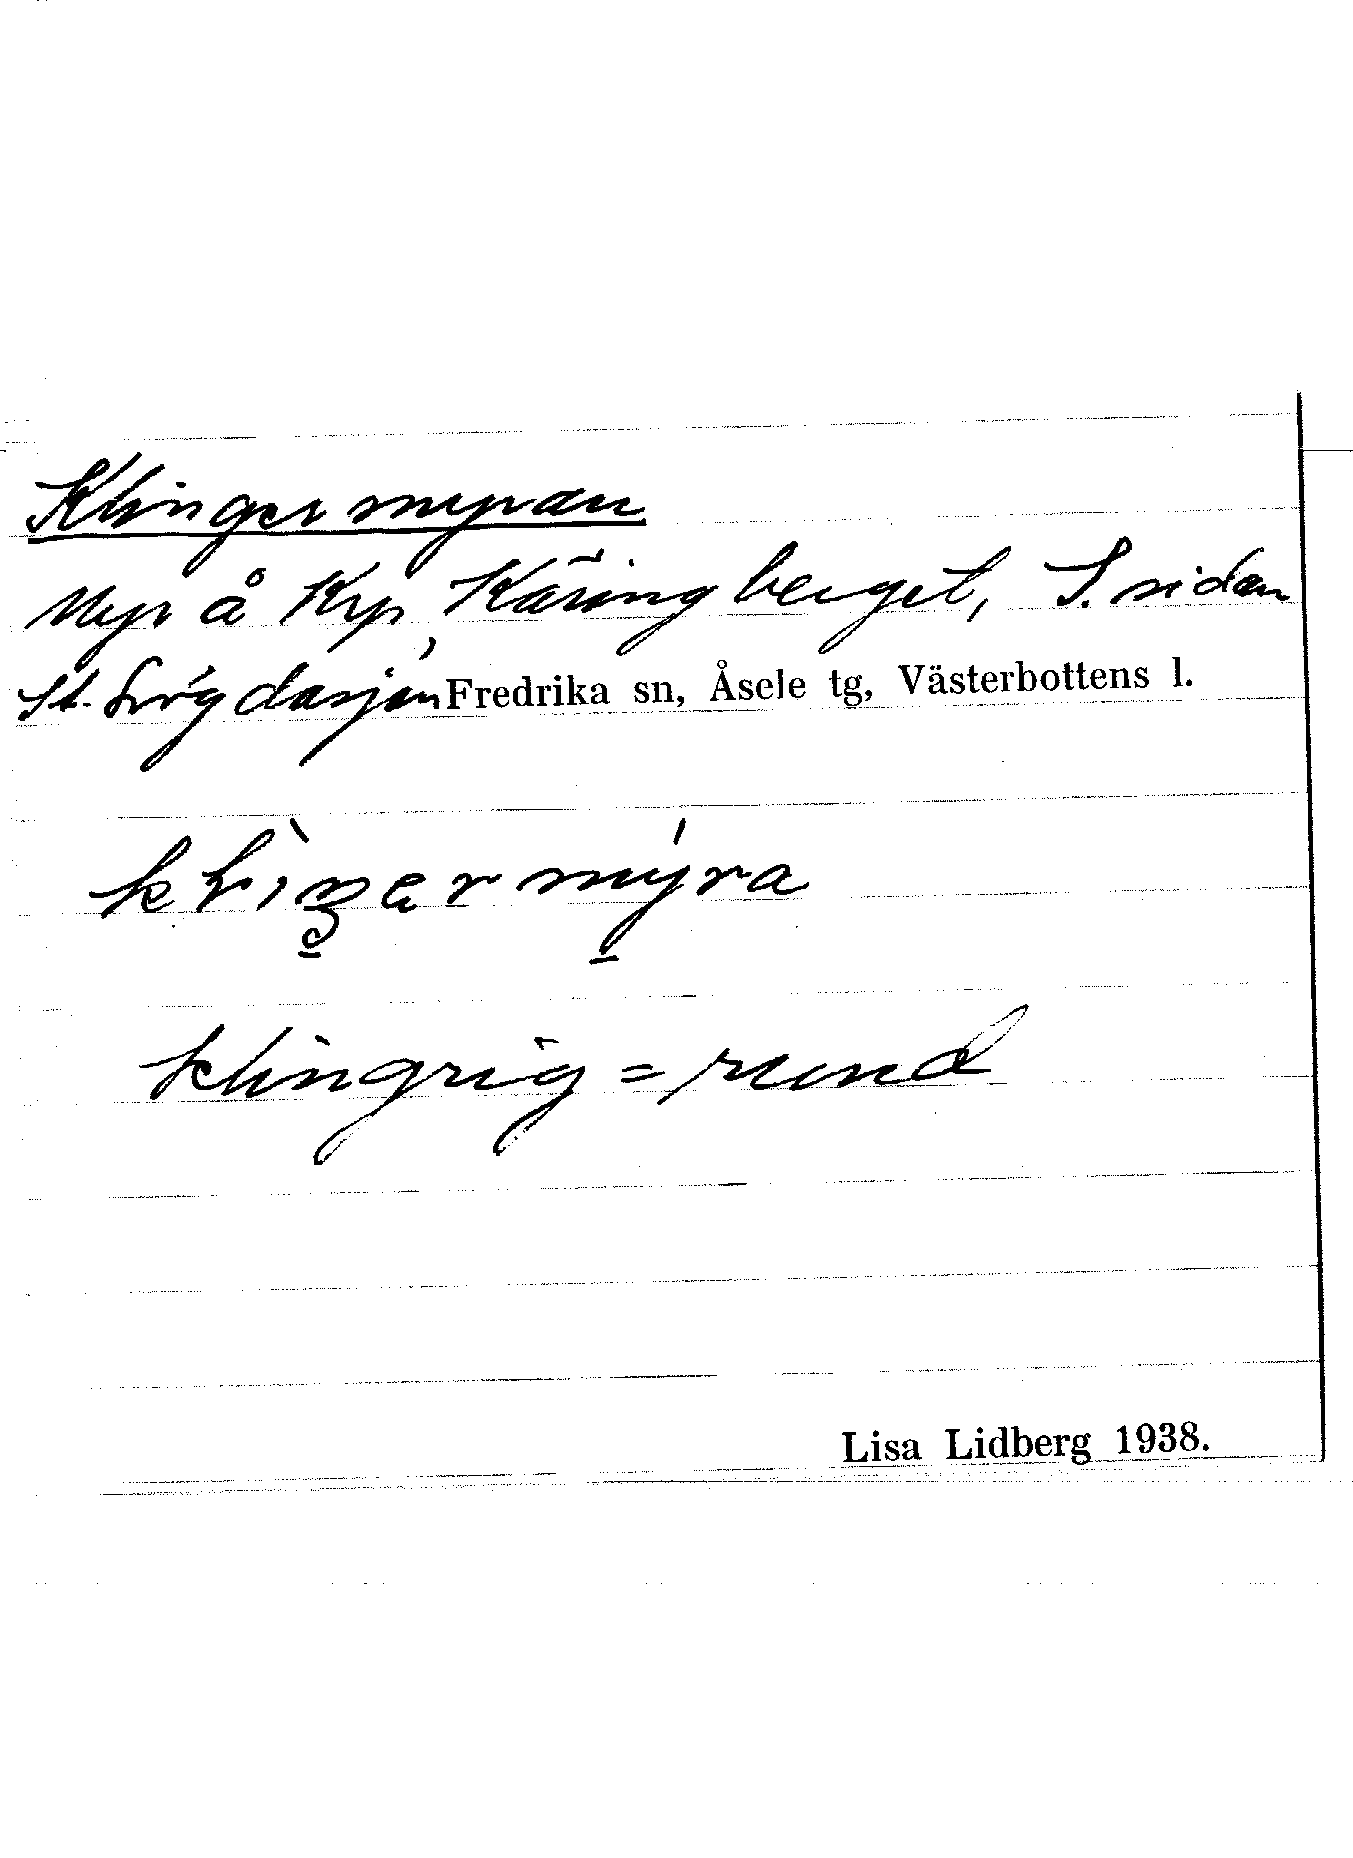 Klingermyran
Myr å Krp, Käringberget, S. sidan
St. Lögdasjön Fredrika sn, Åsele tg, Västerbottens l.
klìŋermýra
klingrig = rund
Lisa Lidberg 1938.